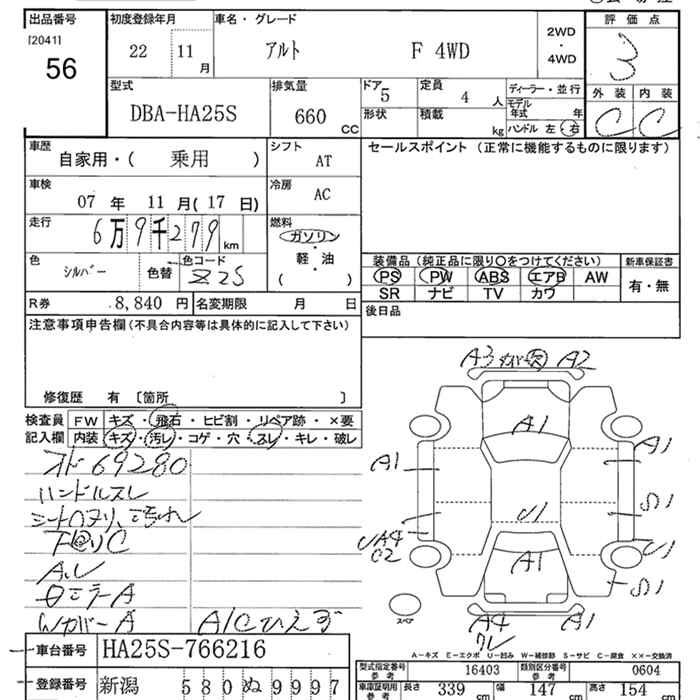 出品番号 初度登録年月 車名・グレード 評価点
[2041] 22 11 月 アルト F 4WD 2WD ・ 4WD 3
56
外装 内装
C C
型式 排気量 ドア 5 定員 4 人 ディーラー・並行
DBA-HA25S 660 CC 形状 積載 kg モデル年式 年
ハンドル 左 右
車歴 シフト セールスポイント (正常に機能するものに限ります)
自家用・( 乗用 ) AT
車検 冷房
07 年 11 月( 17 日) AC
走行 燃料
6万9千279 km ガソリン
色 色コード 軽・油
シルバー 色替 Z2S ( )
装備品 (純正品に限り〇をつけてください) 新車保証書
PS PW ABS エアB AW 有・無
SR ナビ TV カワ
R券 8,840 円 名変期限 月 日
後日品
注意事項申告欄 (不具合内容等は具体的に記入して下さい)
修復歴 有 〔箇所 〕
検査員 FW キズ・飛石・ヒビ割・リペア跡・×要
記入欄 内装 キズ・汚レ・コゲ・穴・スレ・キレ・破レ
69280
ハンドルスレ
A
A/Cひえず
A3 A2
A1
A1 A1
U1 S1
C2 U1
A1 S1
スペア
A4 A1
A-キズ E-エクボ U-凹み W-補修跡 S-サビ C-腐食 ××-交換済
車台番号 HA25S-766216
型式指定番号 参考 16403 類別区分番号 参考 0604
登録番号 新潟 580 ぬ 9997
車車証明用 参考 長さ 339 cm 幅 147 cm 高さ 154 cm